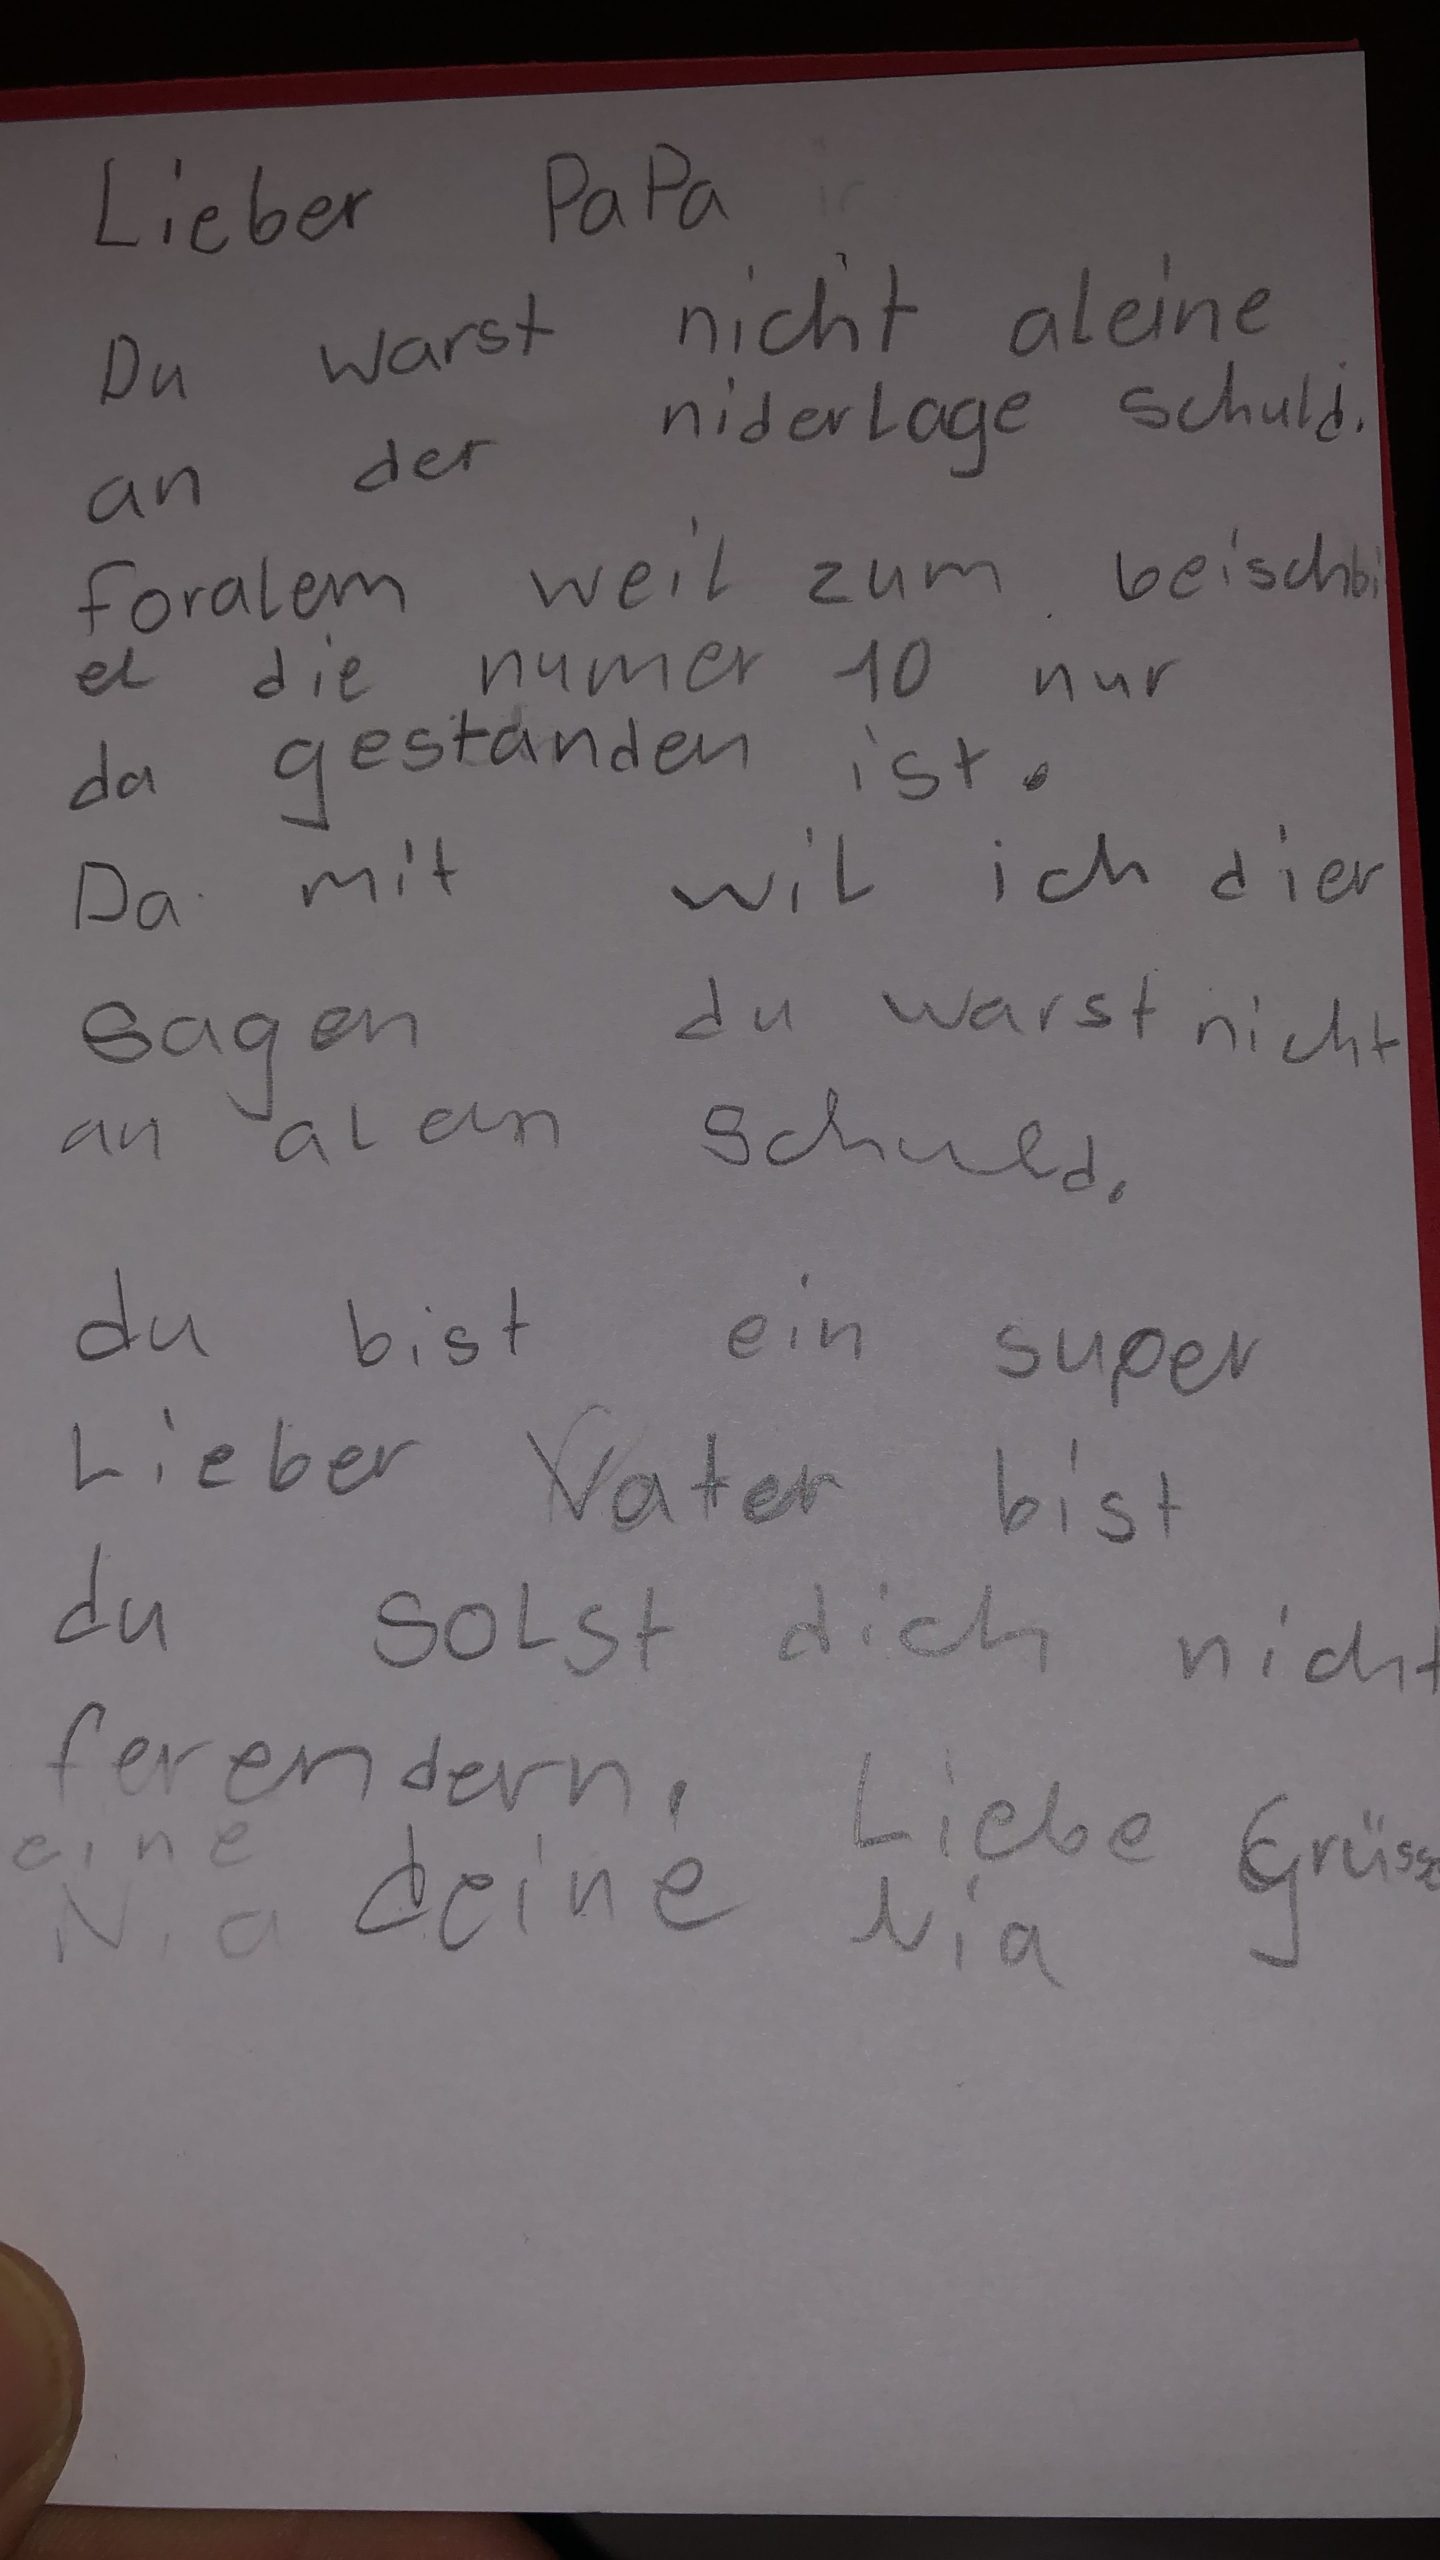 Lieber PaPa
Du warst nicht aleine
an der niderlage schuld.
foralem weil zum beischbi
el die numer 10 nur
da gestanden ist.
Da mit wil ich dier
sagen du warst nicht
an alein schuld.
du bist ein super
Lieber Vater bist
du solst dich nicht
ferendern. Liebe Grüsse
eine deine Nia
Nia